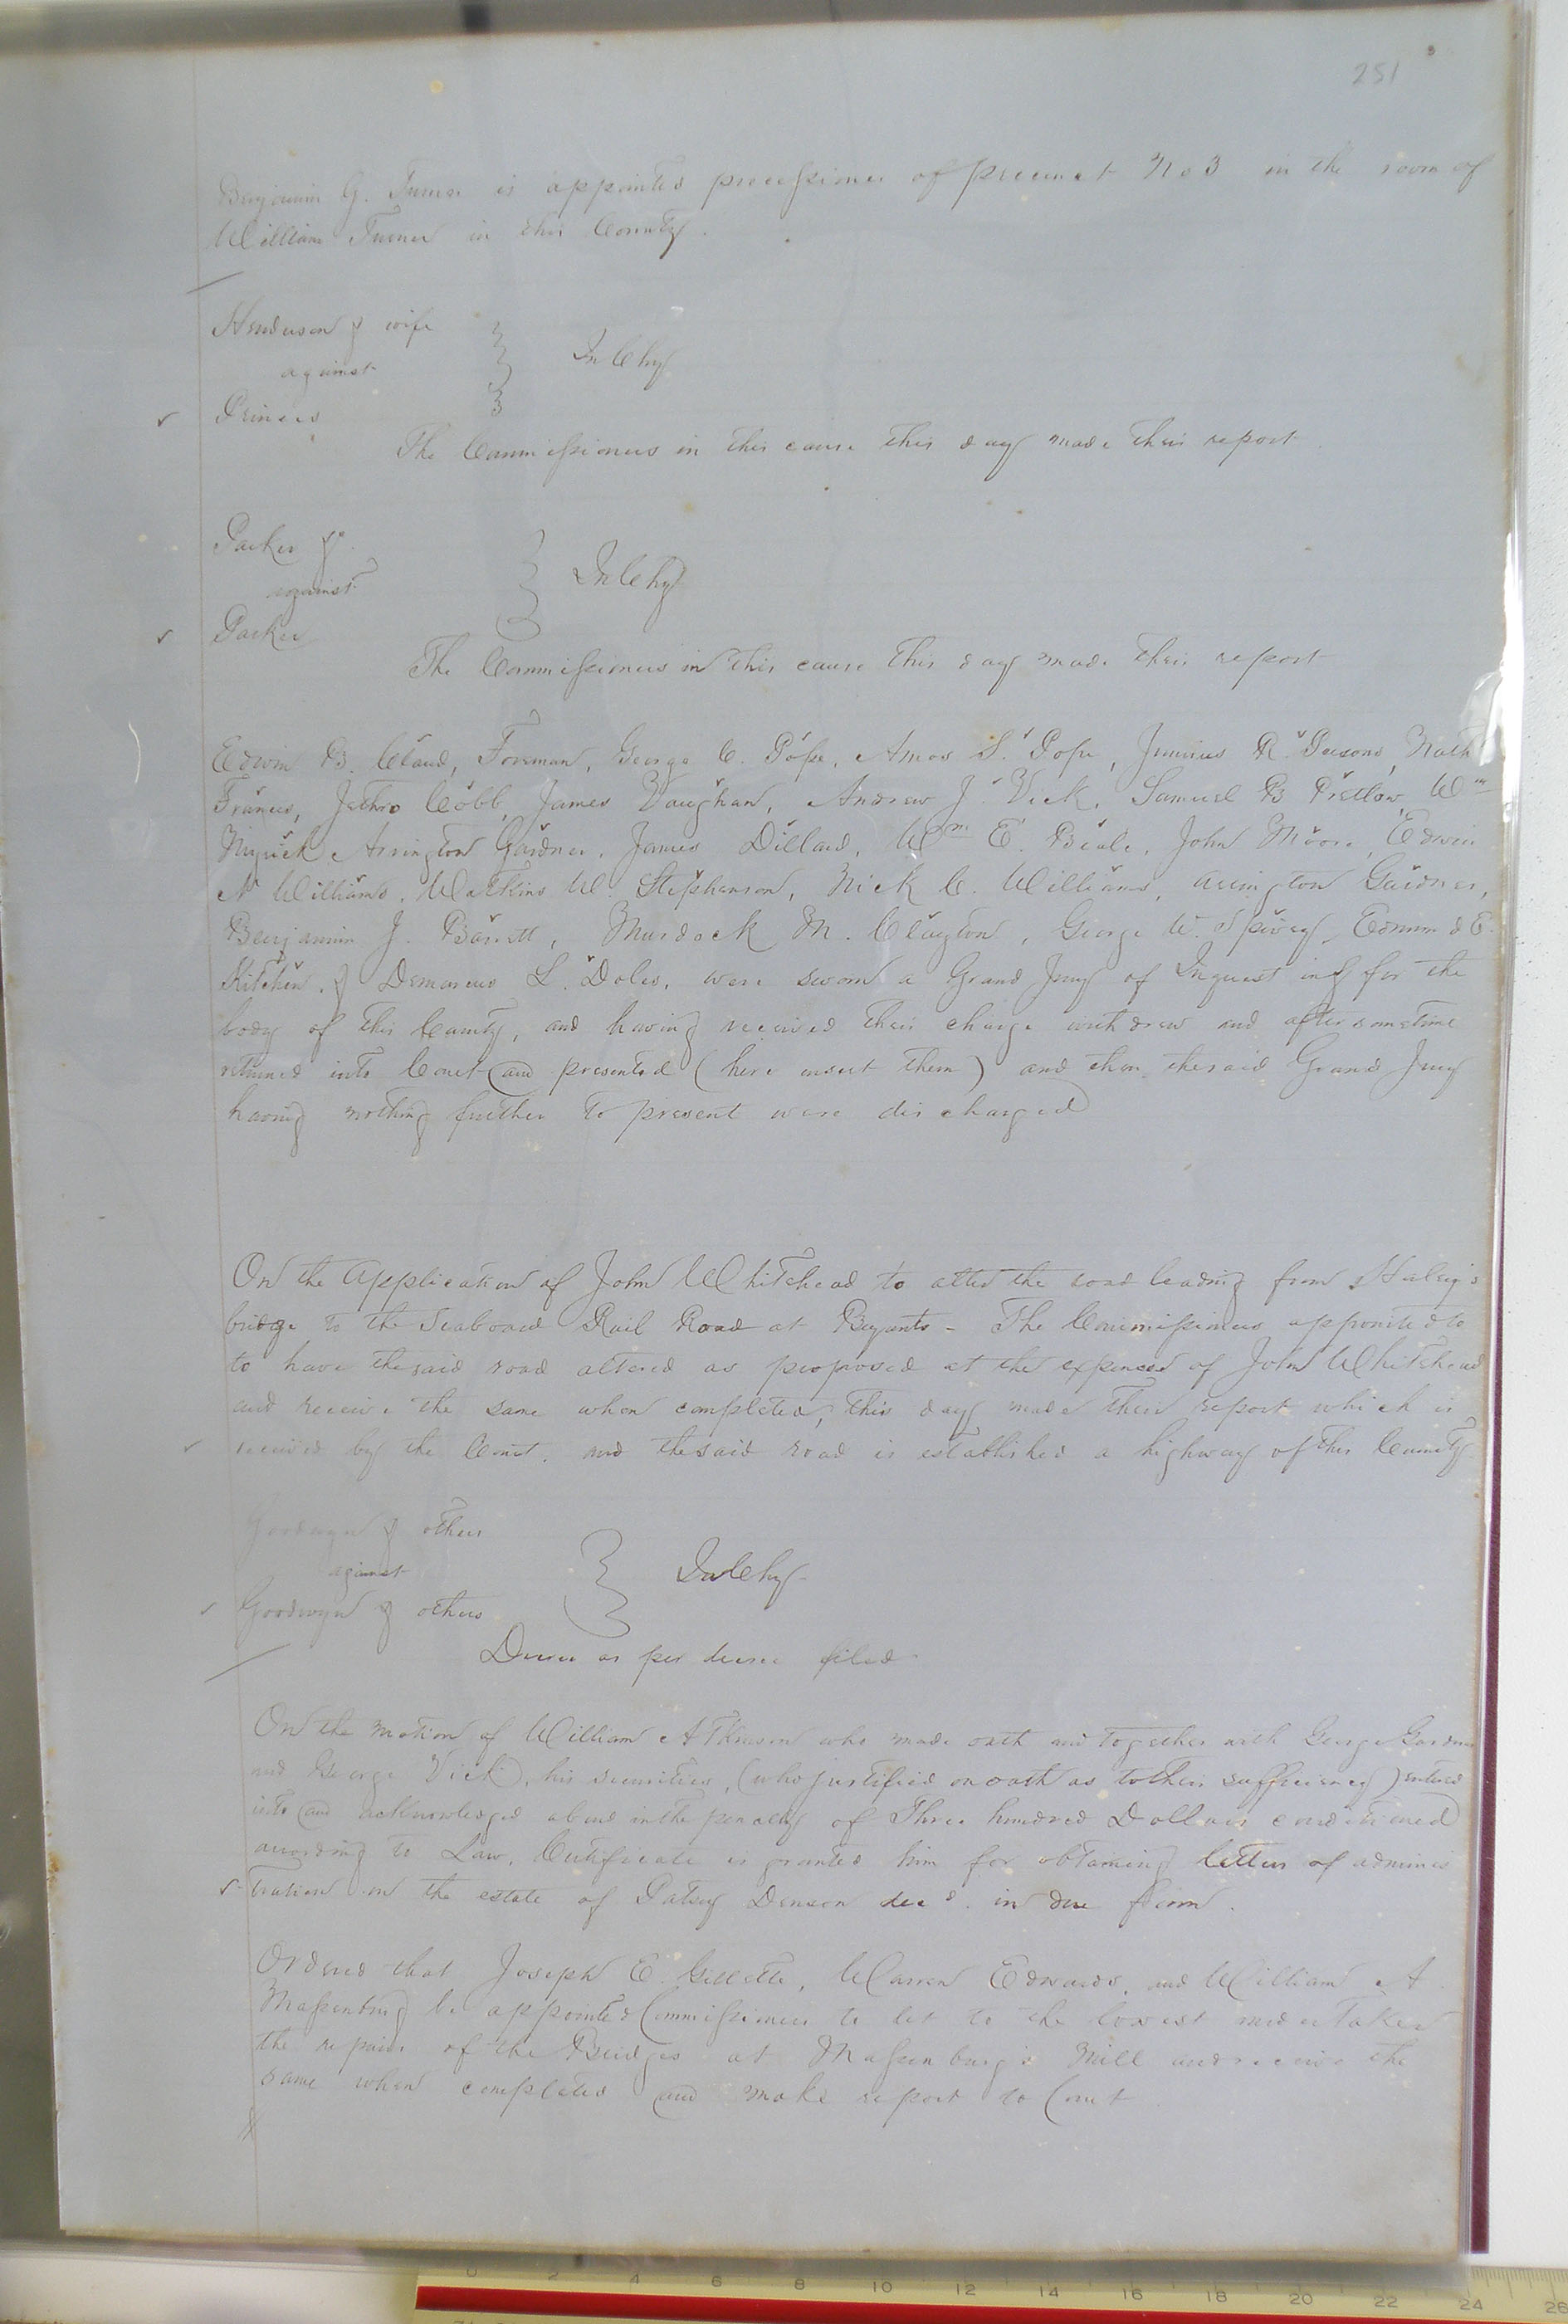 251
Benjamin G. Turner is appointed processioner of precinct No 3 in the room of
William Turner in this County.
Henderson & wife
against
In Chy
Princes
The Commissioners in this cause this day made their report
Parker &c.
against
In Chy
Parker
The Commissioners in this cause this day made their report
Edwin B. Claud, Forman, George C. Pope, Amos S. Pope, Junius R. Parsons, Nath
Francis, Jethro Cobb, James Vaughan, Andrew J Vick, Samuel B Pretlow, Wm
Myrick Arrington Gardner, James Dillard, Wm E. Beale, John Moore, Edwin
N Williams, Watkins W. Stephenson, Nick C. Williams, Arrington Gardner,
Benjamin J. Barrett, Murdock M. Clayton, George W. Spivey, Edmund E.
Kitchen, & Demarcus L. Doles, were sworn a Grand Jury of Inquest in & for the
body of this County, and having received their charge withdrew and after sometime
returned into Court and presented (here insert them) and then the said Grand Jury
having nothing further to present were discharged
On the application of John Whitehead to alter the road leading from Haley's
bridge to the Seaboard Rail Road at Bryants - The Commissioners appointed to
to have the said road altered as proposed at the expense of John Whitehead
and receive the same when completed, this day made their report which is
received by the Court, and the said road is established a highway of this County.
Goodwyn & others
against
In Chy
Goodwyn & others
Decree as per decree filed
On the motion of William Atkinson who made oath and together with George Gardner
and George Vick, his securities, (who justified on oath as to their sufficiency) entered
into and acknowledged a bond in the penalty of Three hundred Dollars conditioned
according to Law, Certificate is granted him for obtaining letters of adminis
tration on the estate of Patsey Denson decd. in due form.
Ordered that Joseph E. Gillette, Warren Edwards, and William A.
Massenburg be appointed Commissioners to let to the lowest undertaker
the repairs of the Bridges at Massenburg's Mill and receive the
same when completed and make report to Court
0 2 4 6 8 10 12 14 16 18 20 22 24 26